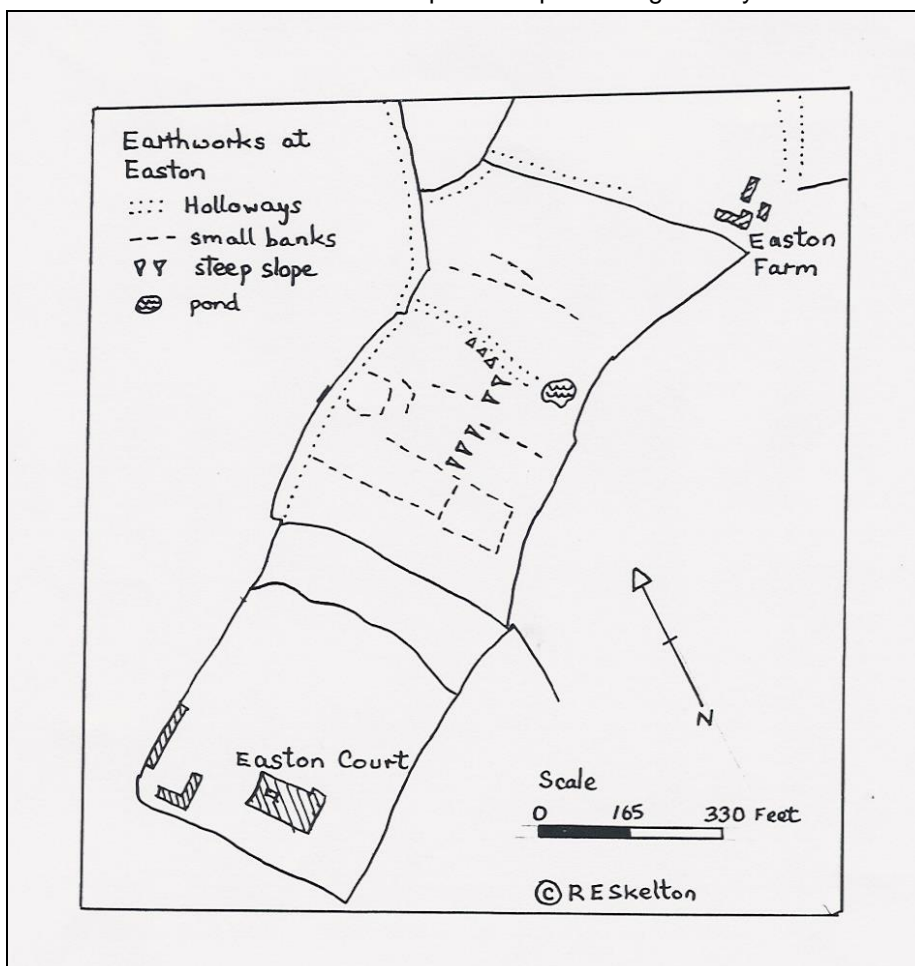 Earthworks at
Easton
Holloways
small banks
steep slope
pond
Easton
Farm
N
Easton Court
Scale
0 165 330 Feet
© RESkelton